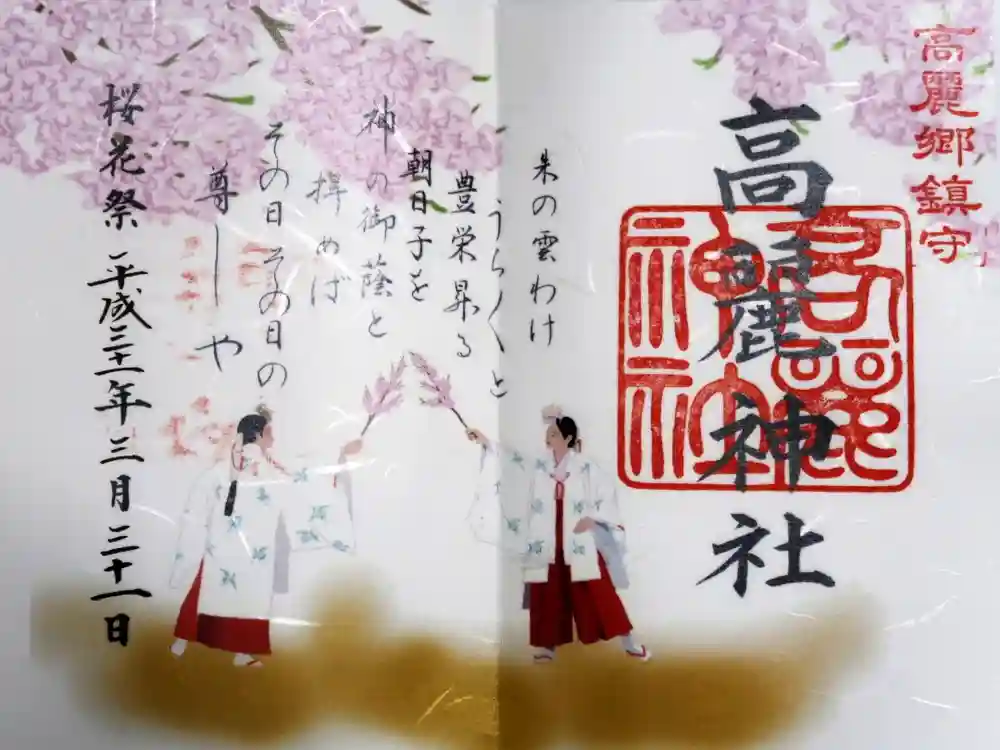 高麗郷鎮守
高麗神社
朱の雲わけ
うら〳〵と
豊栄昇る
朝日子を
神の御蔭と
拝めば
その日その日の
尊しや
桜花祭 平成三十一年三月三十一日